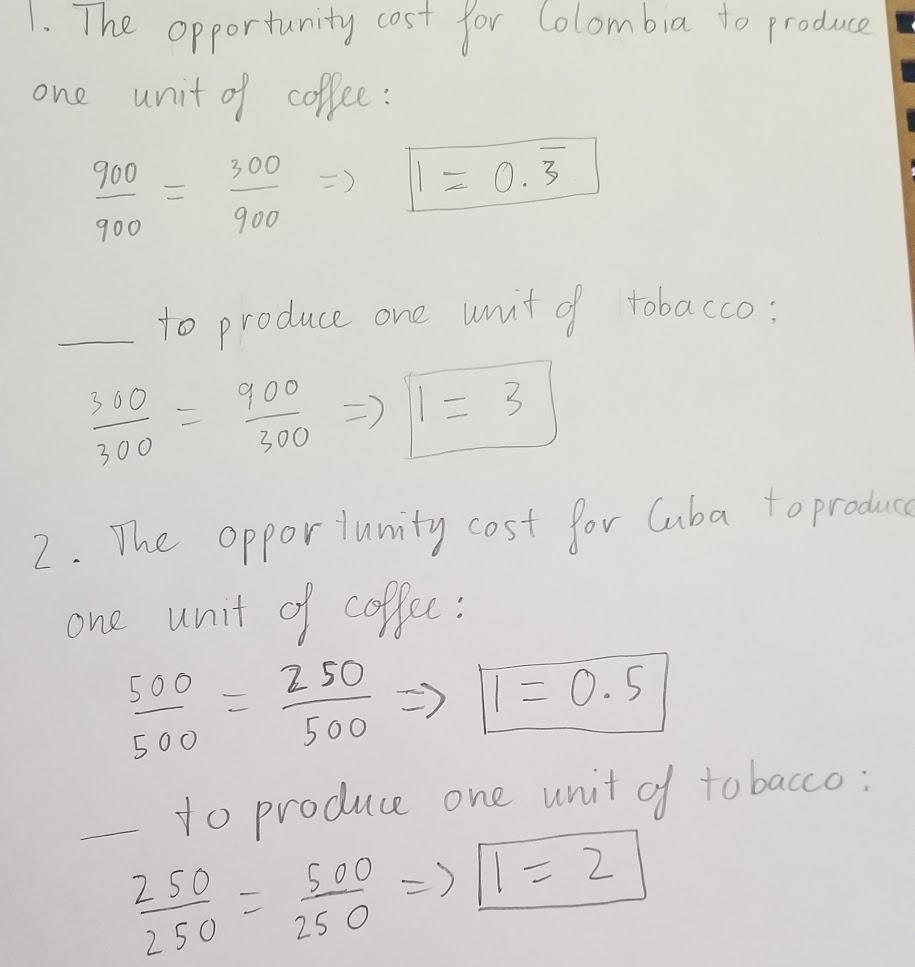 1. The opportunity cost for Colombia to produce
one unit of coffee:
900/900 = 300/900 => 1 = 0.3̅
___ to produce one unit of tobacco:
300/300 = 900/300 => 1 = 3
2. The opportunity cost for Cuba to produce
one unit of coffee:
500/500 = 250/500 => 1 = 0.5
__ to produce one unit of tobacco:
250/250 = 500/250 => 1 = 2